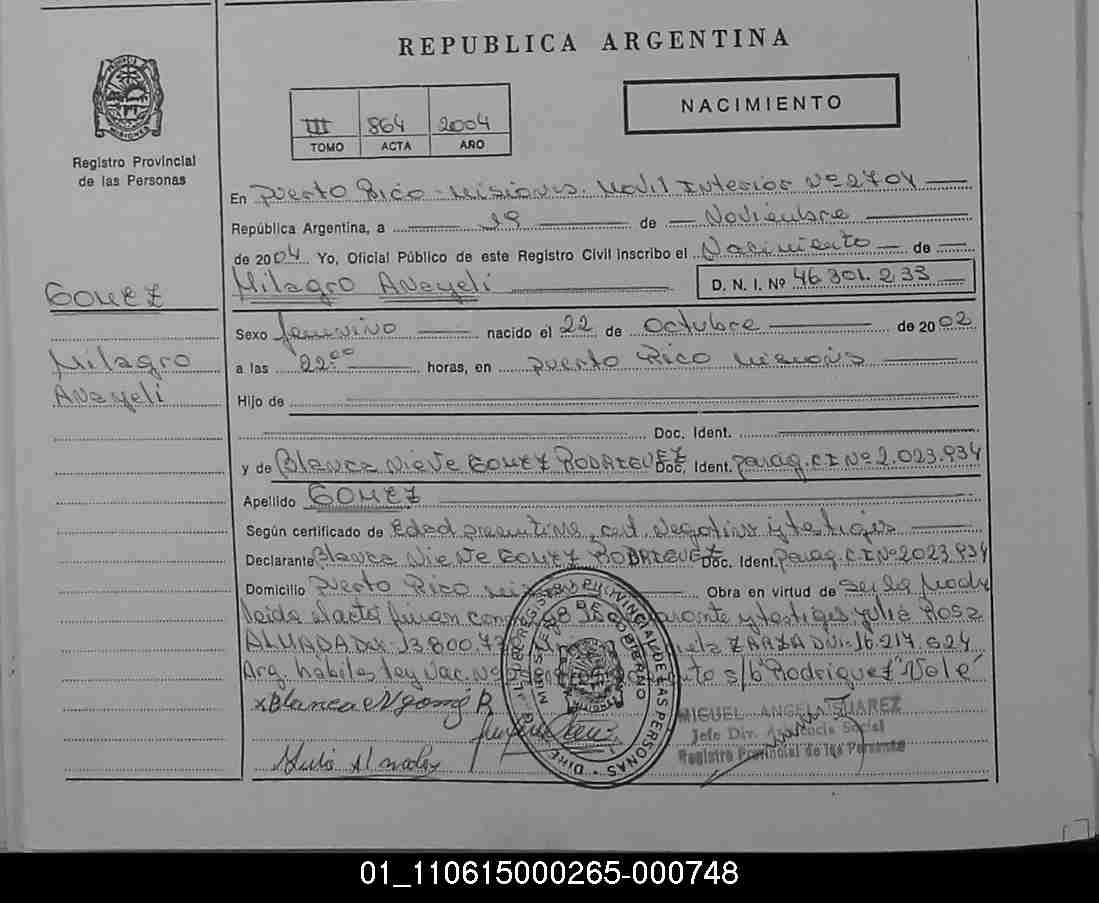 REPUBLICA ARGENTINA
NACIMIENTO
III 864 2004
TOMO ACTA AÑO
MISIONES
Registro Provincial
de las Personas
En Puerto Rico - Misiones. Movil Interior Nº 2704
República Argentina, a 19 de Noviembre
de 2004 Yo, Oficial Público de este Registro Civil inscribo el Nacimiento de
Milagro Anayeli D. N. I. Nº 46.301.233
GOMEZ
Milagro
Anayeli
Sexo femenino nacido el 22 de octubre de 2002
a las 22:00 horas, en Puerto Rico Misiones
Hijo de
Doc. Ident.
y de Blanca Nieve GOMEZ RODRIGUEZ Doc. Ident. parag. C I Nº 2.023.934
Apellido GOMEZ
Según certificado de Edad presuntiva, cert. negativo y testigos
Declarante Blanca Nieve GOMEZ RODRIGUEZ Doc. Ident. parag. C.I Nº 2023.934
Domicilio Puerto Rico Obra en virtud de ser la madre
leida el acta firman con y testigos Julia Rosa
ALMADA ZARZA DNI-16.217.624
Arg. habiles s/b "Rodriguez" Vale
Blanca N gomez R
MIGUEL ANGEL SUAREZ
Jefe Div. Asistencia Social
Registro Provincial de las Personas
REGISTRO PROVINCIAL DE LAS PERSONAS
MINISTERIO DE GOBIERNO
MISIONES
01_110615000265-000748